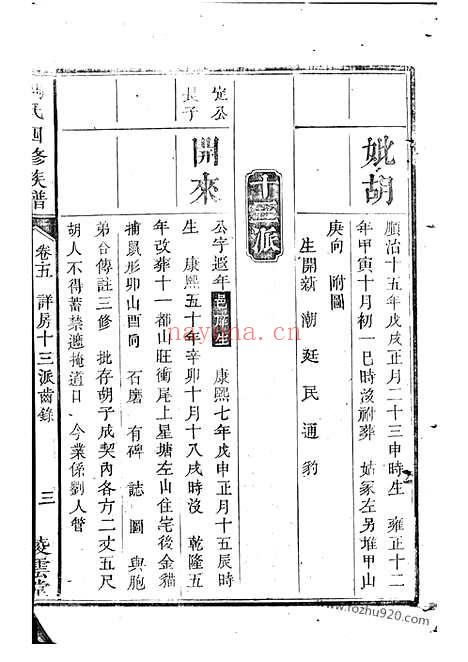 妣胡
順治十五年戊戌正月二十三申時生 雍正十二
年甲寅十月初一巳時沒祔葬 姑冢左另堆甲山
庚向 附圖
生開新 潮 廷 民 通 豹
十三派
定公
長子
開來
公字遐年 邑庠生 康熙七年戊申正月十五辰時
生 康熙五十年辛卯十月十八戌時沒 乾隆五
年改葬十一都山旺衝尾上星塘左山住宅後金貓
捕鼠形卯山酉向 石磨 有碑 誌 圖 與胞
弟合傳註三修 批存胡子成契內各方二丈五尺
胡人不得蓄禁遮掩道日 今業係劉人管
氏四修族譜
卷五 詳房十三派齒錄
三
凌雲堂
nayona.cn
www.fozhu920.com